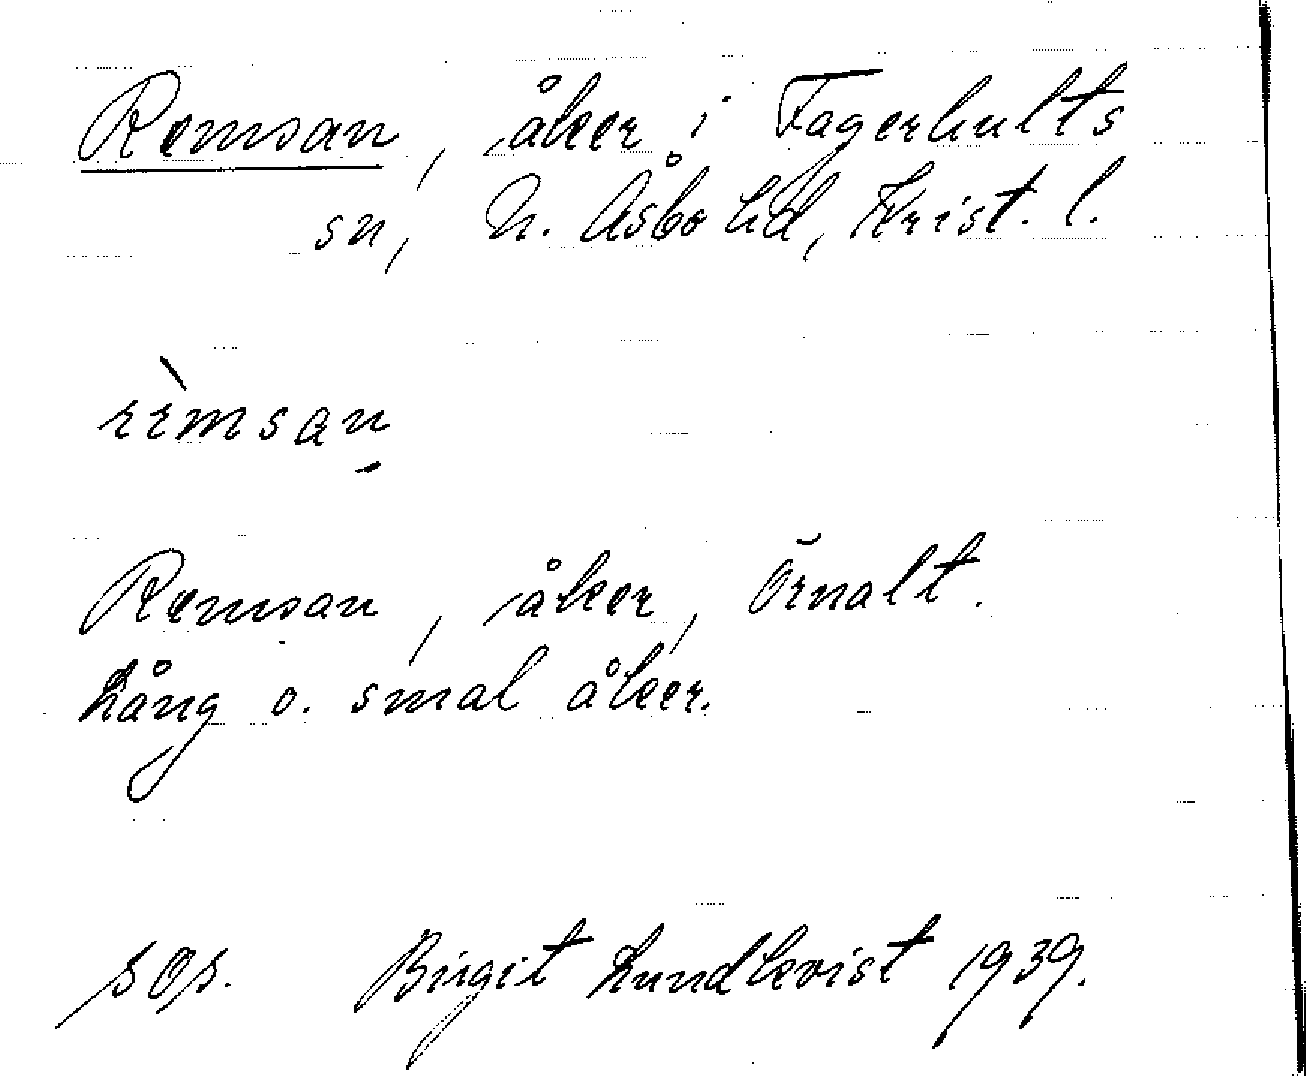 Remsan, åker i Fagerhults
sn, N. Åsbo hd, Krist. l.
rèmsan̠
Remsan, åker, Örnalt.
Lång o. smal åker.
sos. Birgit Lundkvist 1939.